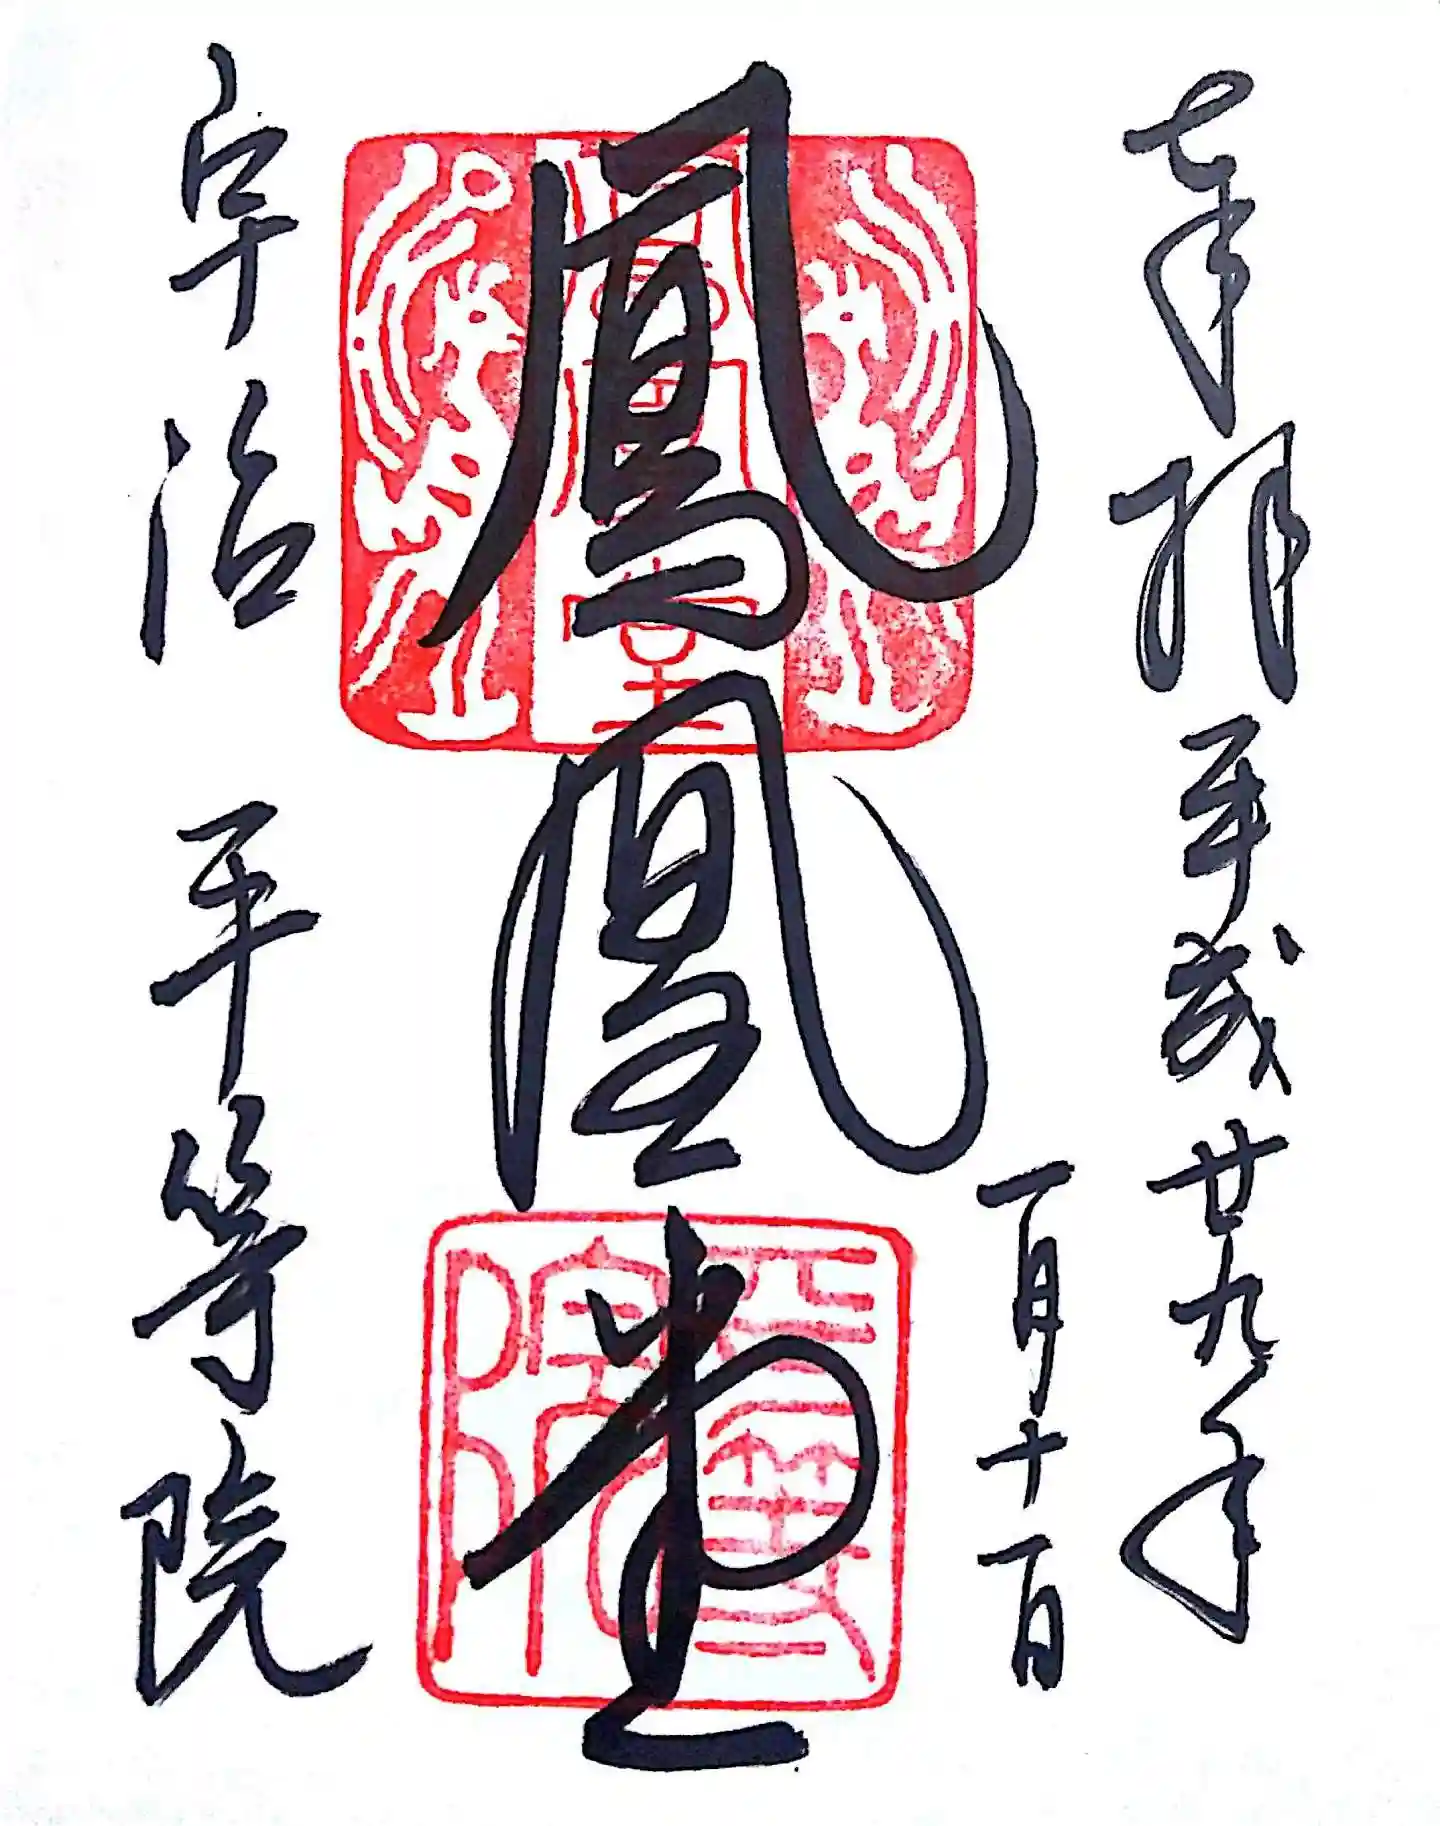 奉拝 平成廿九年
一月十一日
鳳凰堂
宇治 平等院
鳳凰堂
平等院